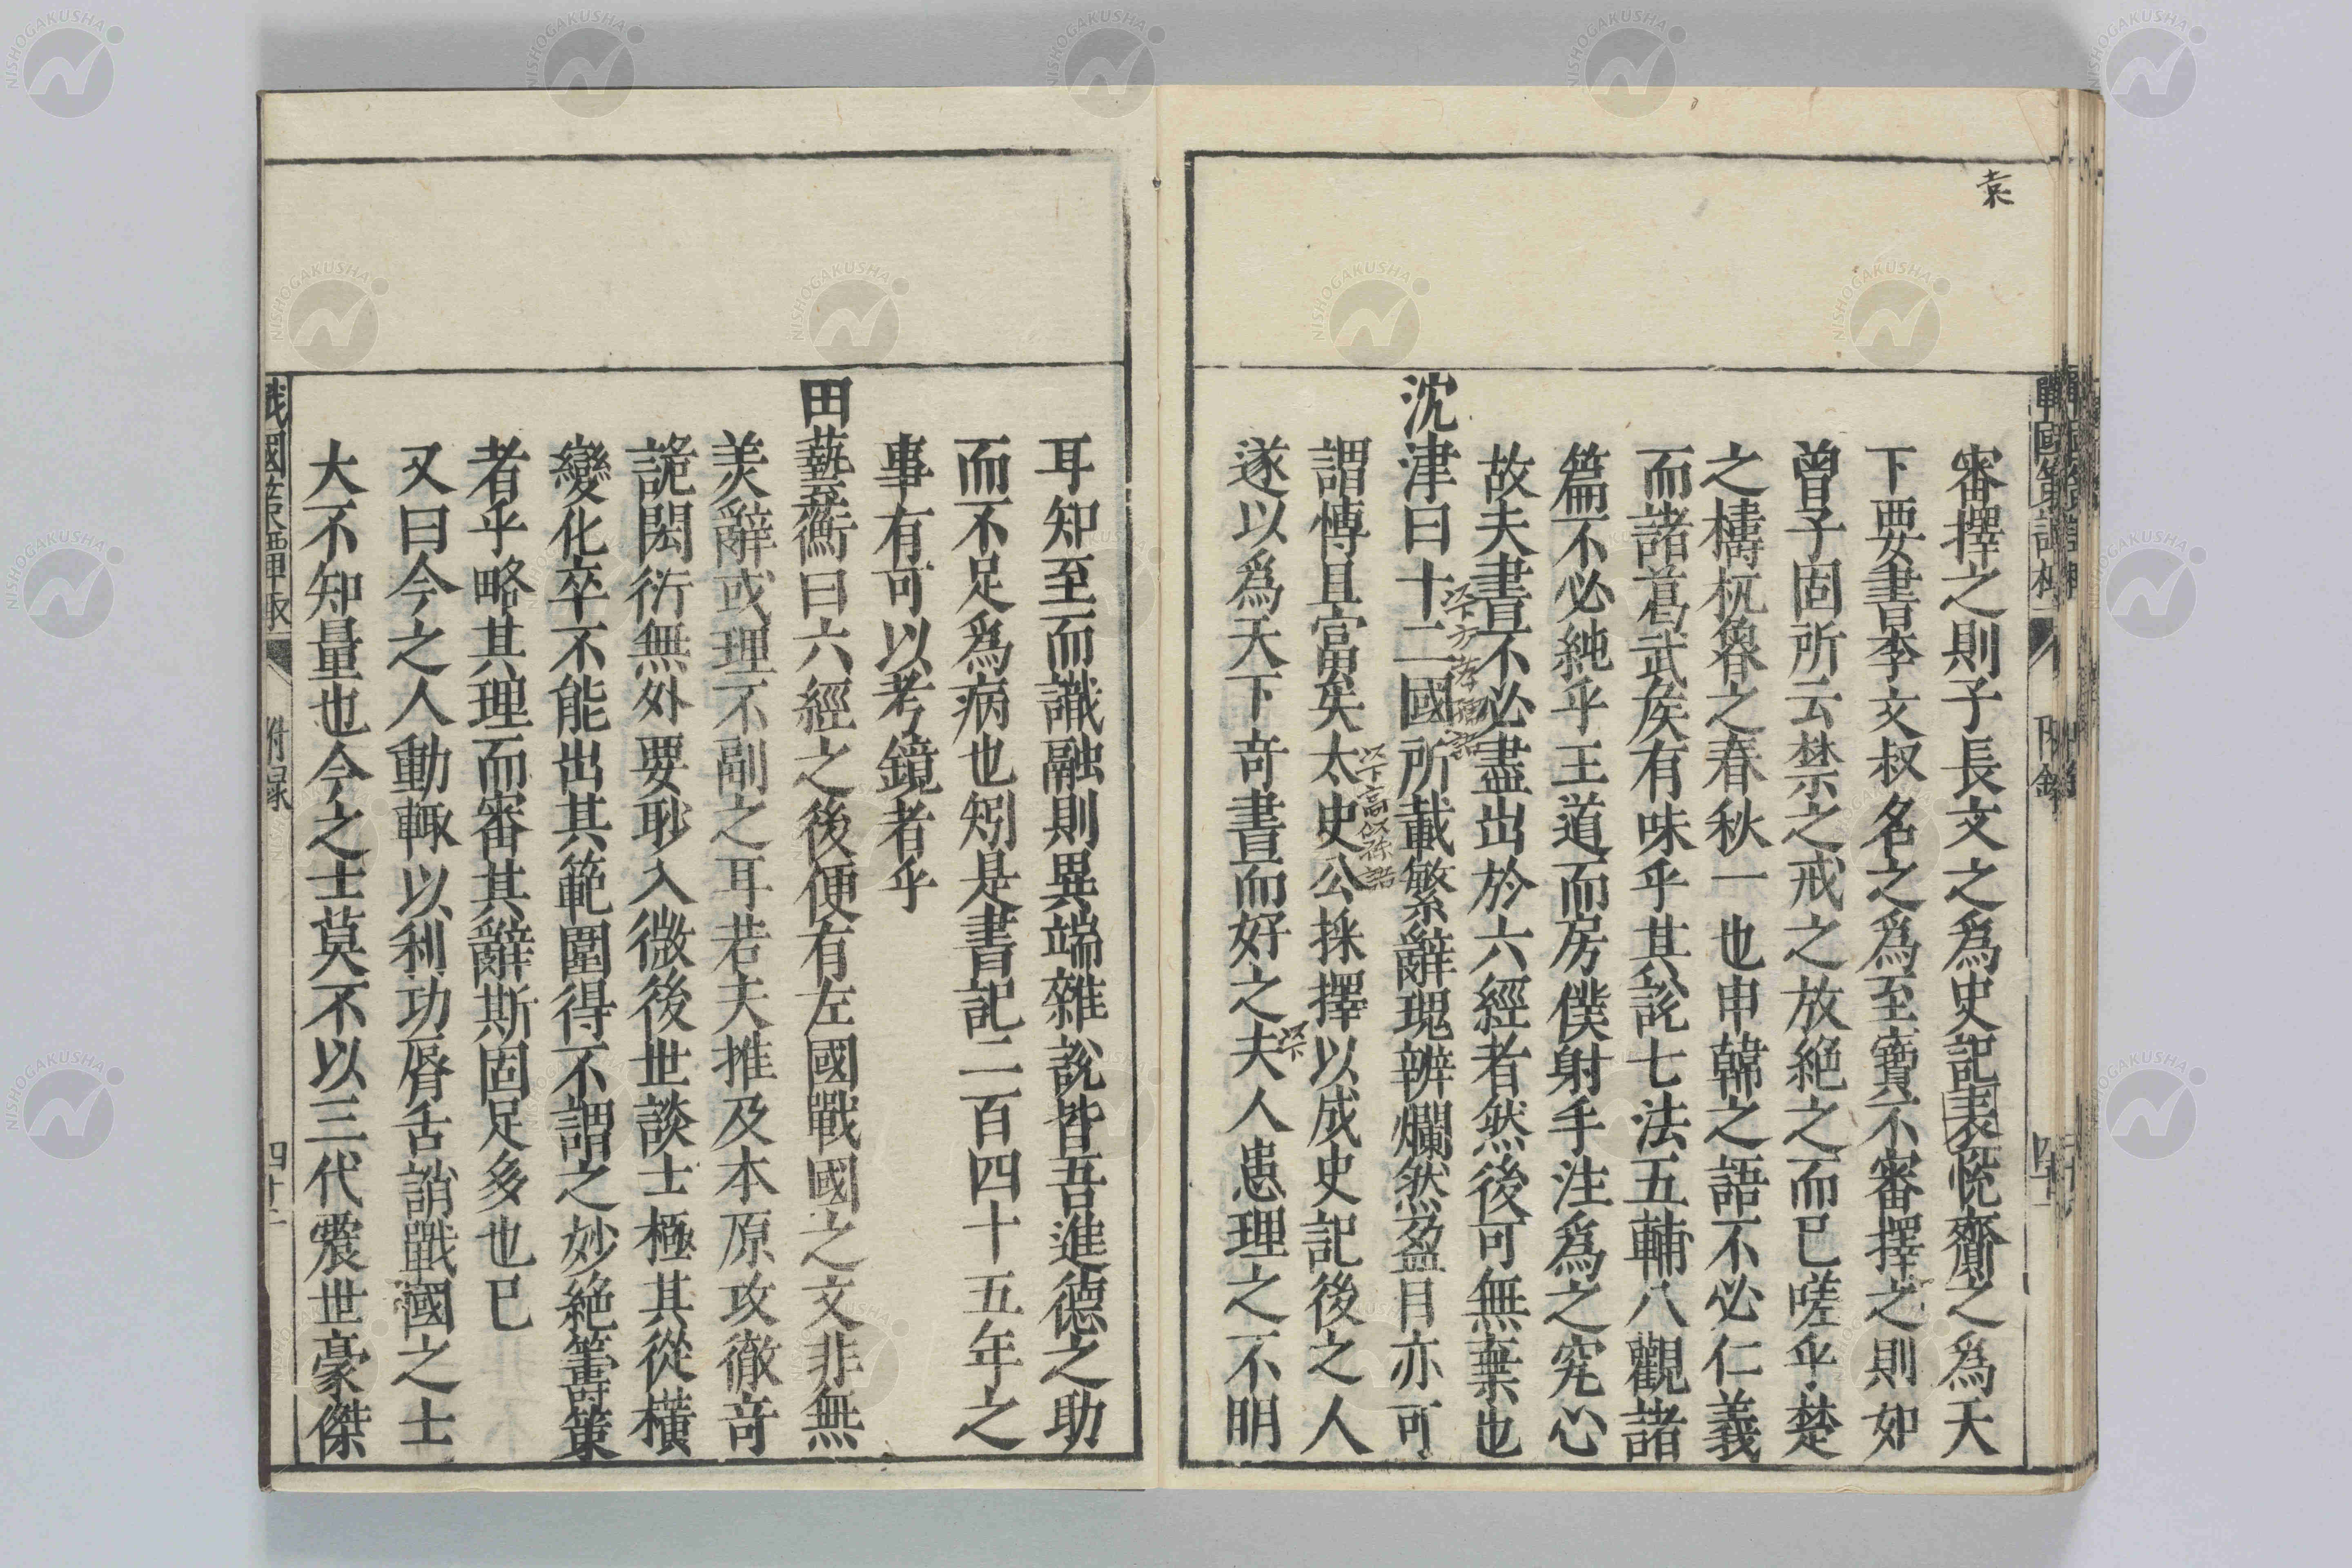 袁
審擇之則子長文之為史記表悅齋之為天
下要書李文叔名之為至寶不審擇之則如
曾子固所云禁之戒之放絕之而已嗟乎楚
之檮杌魯之春秋一也申韓之語不必仁義
而諸葛武侯有味乎其說七法五輔八觀諸
篇不必純乎王道而房僕射手注為之究心
故夫書不必盡出於六經者然後可無棄也
沈津曰十二國所載繁辭瑰辨爛然盈目亦可
以下方孝孺語
謂愽且富矣太史公採擇以成史記後之人
以下高似孫語
遂以爲天下奇書而好之夫人患理之不明
以下
耳知至而識融則異端雜說皆吾進德之助
而不足爲病也矧是書記二百四十五年之
事有可以考鏡者乎
田藝蘅曰六經之後便有左國戰國之文非無
美辭或理不副之耳若夫推及本原攻徹竒
詭閎衍無外要眇入微後世談士極其從橫
變化卒不能出其範圍得不謂之妙絕籌策
者乎略其理而審其辭斯固足多也已
又曰今之人動輒以利功脣舌誚戰國之士
大不知量也今之士莫不以三代震世豪傑
戰國策譚棷
附録
四十二